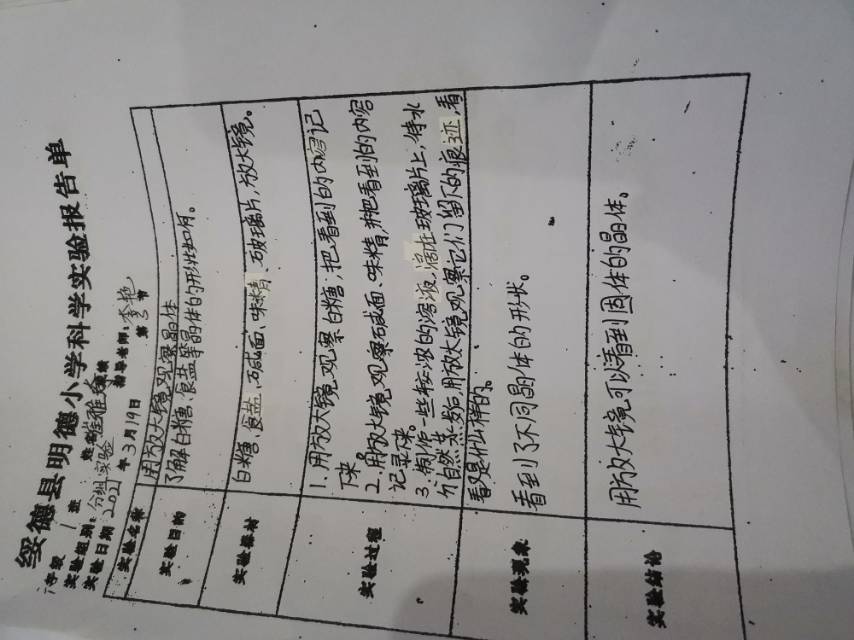 绥德县明德小学科学实验报告单
年级 1 班 姓名:崔雅
实验组别:分组实验 指导老师:李艳
实验日期 2021 年 3 月 19 日 第 节
实验名称 用放大镜观察晶体
实验目的 了解白糖、食盐等晶体的形状如何。
实验器材 白糖、食盐、碱面、味精、玻璃片,放大镜。
实验过程 1.用放大镜观察白糖,把看到的内容记
下来。
2.用放大镜观察碱面、味精,并把看到的内容
记录下来。
3、制作一些较浓的溶液,滴在玻璃片上,待水
分自然蒸发后用放大镜观察它们留下的痕迹,看
看又是什么样的。
实验现象 看到了不同晶体的形状。
实验结论 用放大镜可以看到固体的晶体。